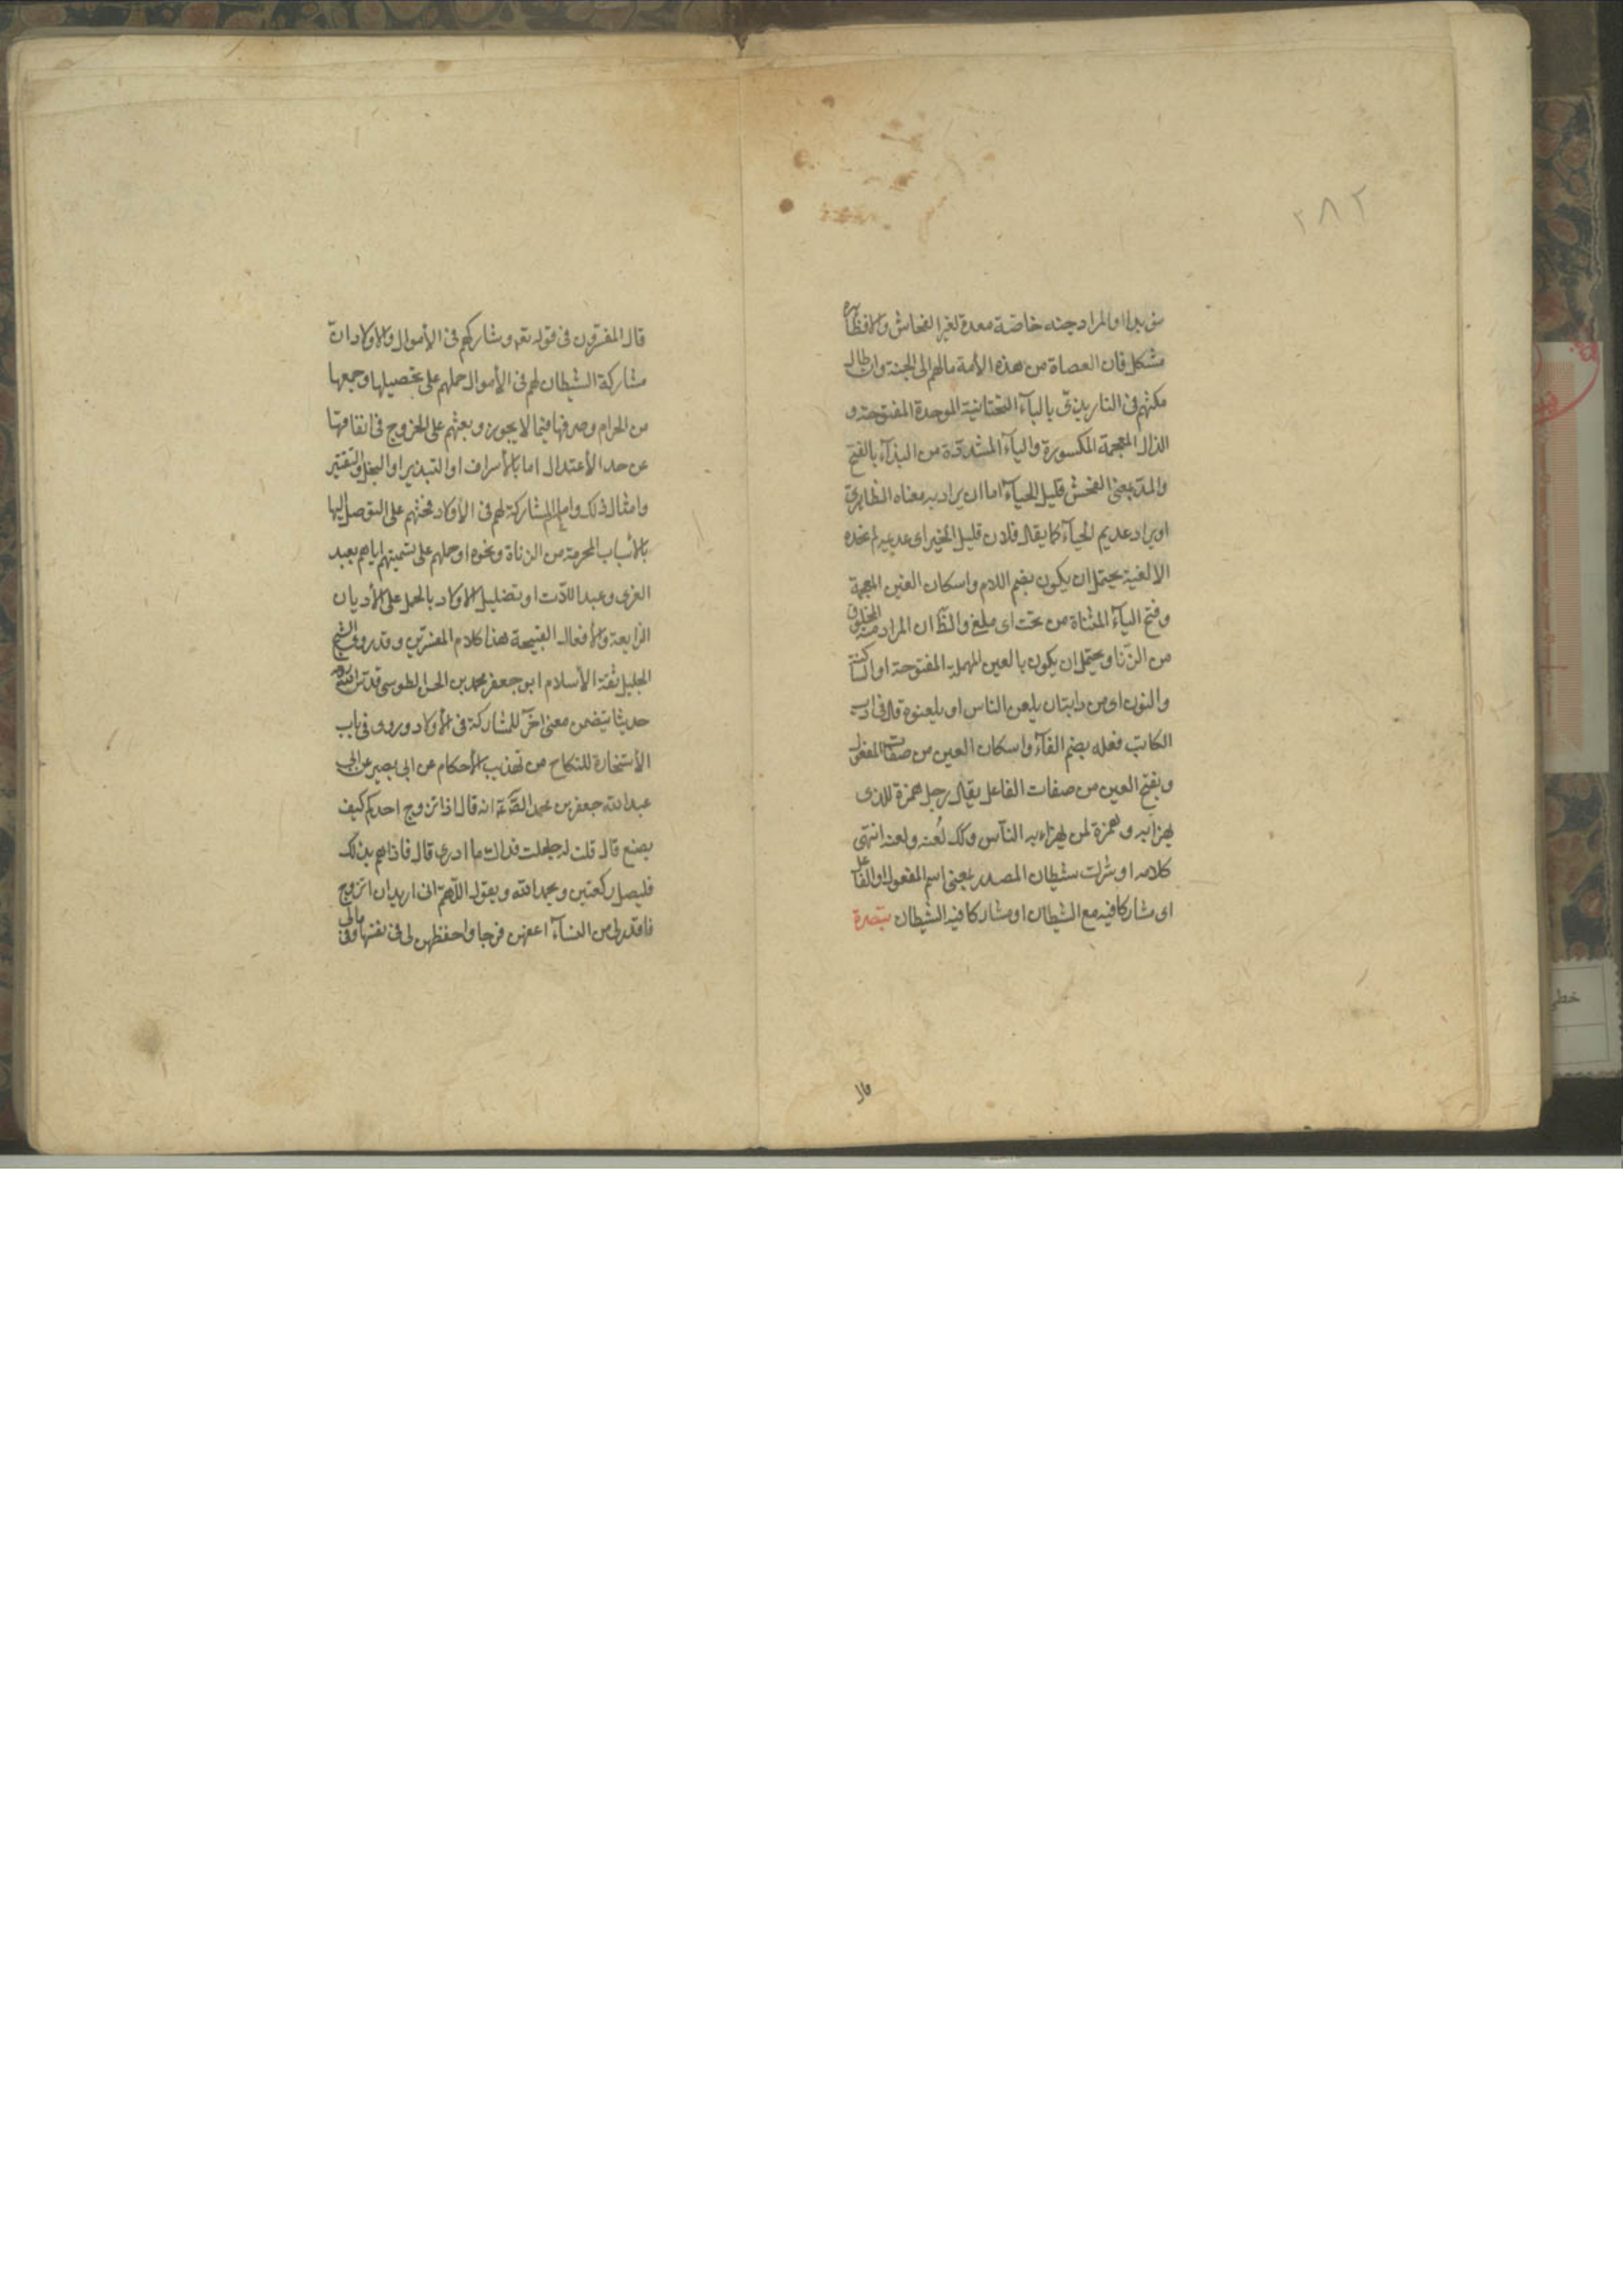 ٢٨٢
او المراد جنه خاصّة معدة لغير الفحاش والا فظاهره
مشكل فان العصاة من هذه الأمة مالهم الى الجنة وان طال
مكثهم فى النار بذىّ بالبآء التحتانية الموحدة المفتوحة و
الذال المعجمة المكسورة والياء المشدّدة من البذآء بالفتح
والمدّ بمعنى الفحش قليل الحيآء اما ان يراد به معناه الظاهرى
او يراد عديم الحيآء كما يقال فلان قليل الخير اى عديمه لم تجده
الا لغية يحتمل ان يكون بضم اللام واسكان الغين المعجمة
وفتح اليآء المثناة من تحت اى ملغى والظّ ان المراد منه المخلوق
من الزّنا ويحتمل ان يكون بالعين المهملة المفتوحة او الساكنة
والنون اى من دابتان يلعن الناس او يلعنوه قال فى ادب
الكاتب فعله بضم الفآء واسكان العين من صفات المفعول
وبفتح العين من صفات الفاعل يقال رجل همزة للذى
يهزا به وهمزة لمن يهزاء به النّاس وكك لُعنه ولعنه انتهى
كلامه او شرك شيطان المصدر بمعنى اسم المفعول او الفاعل
اى مشاركا فيه مع الشيطان او مشاركا فيه الشيطان تبصرة
قال
قال المفسّرون فى قوله تعه وشاركهم فى الأموال والاولاد انّ
مشاركة الشيطان لهم فى الأموال حملهم على تحصيلها وجمعها
من الحرام وصرفها فيما لا يجوز وبعثهم على الخروج فى انفاقها
عن حد الأعتدال اما بالأسراف او التبذير او البخل والتقتير
وامثال ذلك واما المشاركة لهم فى الأولاد فحثهم على التوصل اليها
بالأسباب المحرمة من الزناة ونحوه او حملهم على تسميتهم اياهم بعبد
العزى وعبد اللاّت او تضليل الاولاد بالحمل على الأديان
الزايغة والأفعال القبيحة هذا كلام المفسّرين وقد روى الشيخ
الجليل ثقة الأسلام ابو جعفر محمد بن الحسن الطوسى قدّس الله سره
حديثا يتضمن معنى اخر للمشاركة فى الأولاد وروى فى باب
الأستخارة للنكاح من تهذيب الأحكام عن ابى بصير عن ابى
عبد الله جعفر بن محمد الصّ ع انه قال اذا تزوج احدكم كيف
يصنع قال قلت له جعلت فداك ما ادرى قال فاذا هم بذلك
فليصل ركعتين ويحمد الله ويقول اللّهمّ انى اريد ان اتزوج
فاقدر لى من النسآء اعفهن فرجا واحفظهن لى فى نفسها وفى مالى